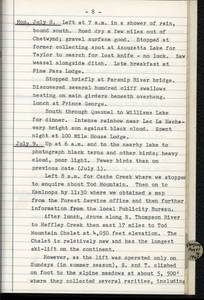 - 8 -
Mon. July 8. Left at 7 a.m. in a shower of rain,
bound south. Road dry a few miles out of
Chetwynd; gravel surface good. Stopped at
former collecting spot at Azouzetta Lake for
Taylor to search for lost knife - no luck. Saw
weasel alongside ditch. Late breakfast at
Pine Pass Lodge.
Stopped briefly at Parsnip River bridge.
Discovered several hundred cliff swallows
nesting on main girders beneath overhang.
Lunch at Prince George.
South through Quesnel to Williams Lake
for dinner. Intense rainbow near Lac La Hache-
very bright sun against black cloud. Spent
night at 100 Mile House Lodge.
July 9. Up at 6 a.m. and to the nearby lake to
photograph black terns and other birds; heavy
cloud, poor light. Fewer birds than on
previous date (July 1).
Left 8 a.m. for Cache Creek where we stopped
to enquire about Tod Mountain. Then on to
Kamloops by 11.30 where we obtained a map
from the Forest Service office and then further
information from the local Publicity Bureau.
After lunch, drove along S. Thompson River
to Heffley Creek then east 17 miles to Tod
Mountain Chalet at 4,050 feet elevation. The
Chalet is relatively new and has the longest
ski-lift on the continent.
However, as the lift was operated only on
Sundays (in summer season), S. and T. climbed
on foot to the alpine meadows at about 5,500'
where they collected several rarities, including